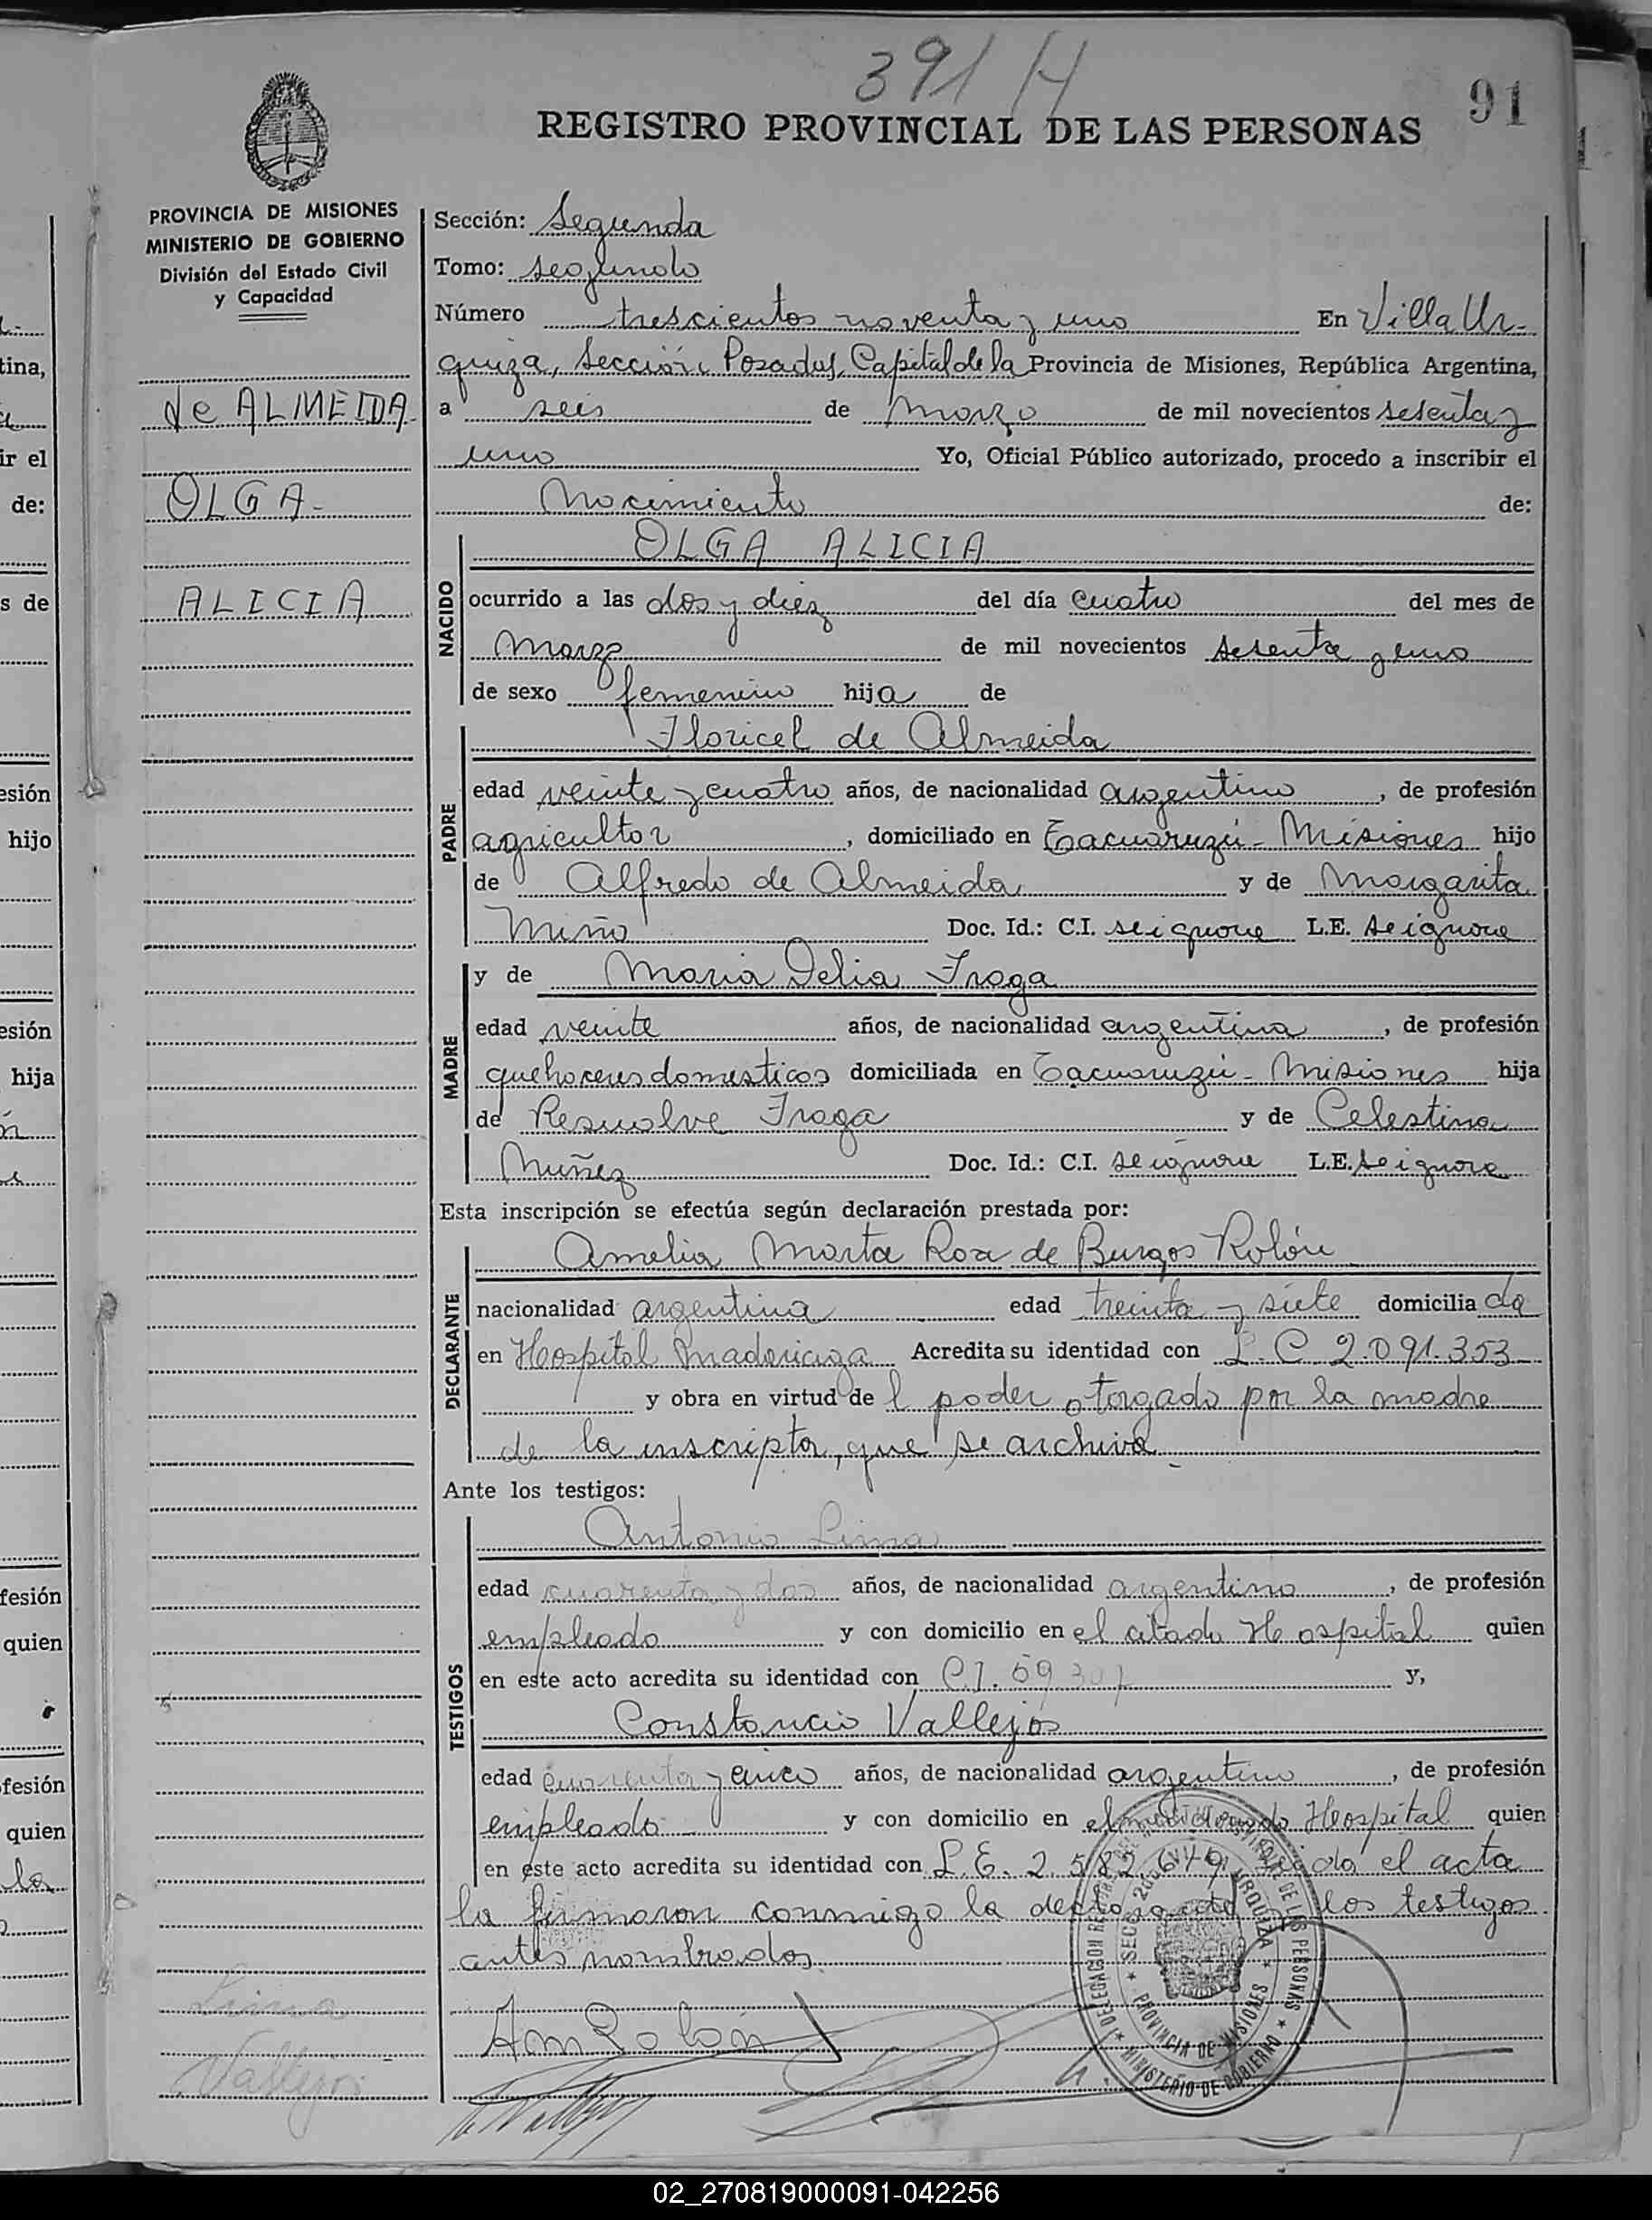 391 H
91
REGISTRO PROVINCIAL DE LAS PERSONAS
PROVINCIA DE MISIONES
MINISTERIO DE GOBIERNO
División del Estado Civil
y Capacidad
de ALMEIDA
OLGA
ALICIA
Sección: Segunda
Tomo: segundo
Número trescientos noventa y uno En Villa Ur-
quiza, Sección Posadas, Capital de la Provincia de Misiones, República Argentina,
a seis de Marzo de mil novecientos sesenta y
uno Yo, Oficial Público autorizado, procedo a inscribir el
Nacimiento de:
NACIDO
OLGA ALICIA
ocurrido a las dos y diez del día cuatro del mes de
Marzo de mil novecientos sesenta y uno
de sexo femenino hija de
PADRE
Floricel de Almeida
edad veinte y cuatro años, de nacionalidad argentino, de profesión
agricultor, domiciliado en Tacuaruzú - Misiones hijo
de Alfredo de Almeida y de Margarita
Miño Doc. Id.: C.I. se ignore L.E. se ignore
MADRE
y de Maria Delia Fraga
edad veinte años, de nacionalidad argentina, de profesión
quehaceres domesticos domiciliada en Tacuaruzú - Misiones hija
de Resuolve Fraga y de Celestina
Muñez Doc. Id.: C.I. se ignore L.E. se ignora
Esta inscripción se efectúa según declaración prestada por:
DECLARANTE
Amelia Marta Roa de Burgos Rolón
nacionalidad argentina edad treinta y siete domiciliada
en Hospital Madariaga Acredita su identidad con L. C 2.091.353
y obra en virtud del poder otorgado por la madre
de la inscripta, que se archiva
Ante los testigos:
TESTIGOS
Antonio Lima
edad cuarenta y dos años, de nacionalidad argentino, de profesión
empleado y con domicilio en el citado Hospital quien
en este acto acredita su identidad con C.I. 69 307 y,
Constancio Vallejos
edad cuarenta y cinco años, de nacionalidad argentino, de profesión
empleado y con domicilio en el mencionado Hospital quien
en este acto acredita su identidad con L.E. 2.582.649 el acta
la firmaron conmigo la declarante los testigos
antes nombrados
Lima
Vallejos
Am Rolón
DELEGACION REGISTRO PROVINCIAL DE LAS PERSONAS
MINISTERIO DE GOBIERNO
PROVINCIA DE MISIONES
02_270819000091-042256